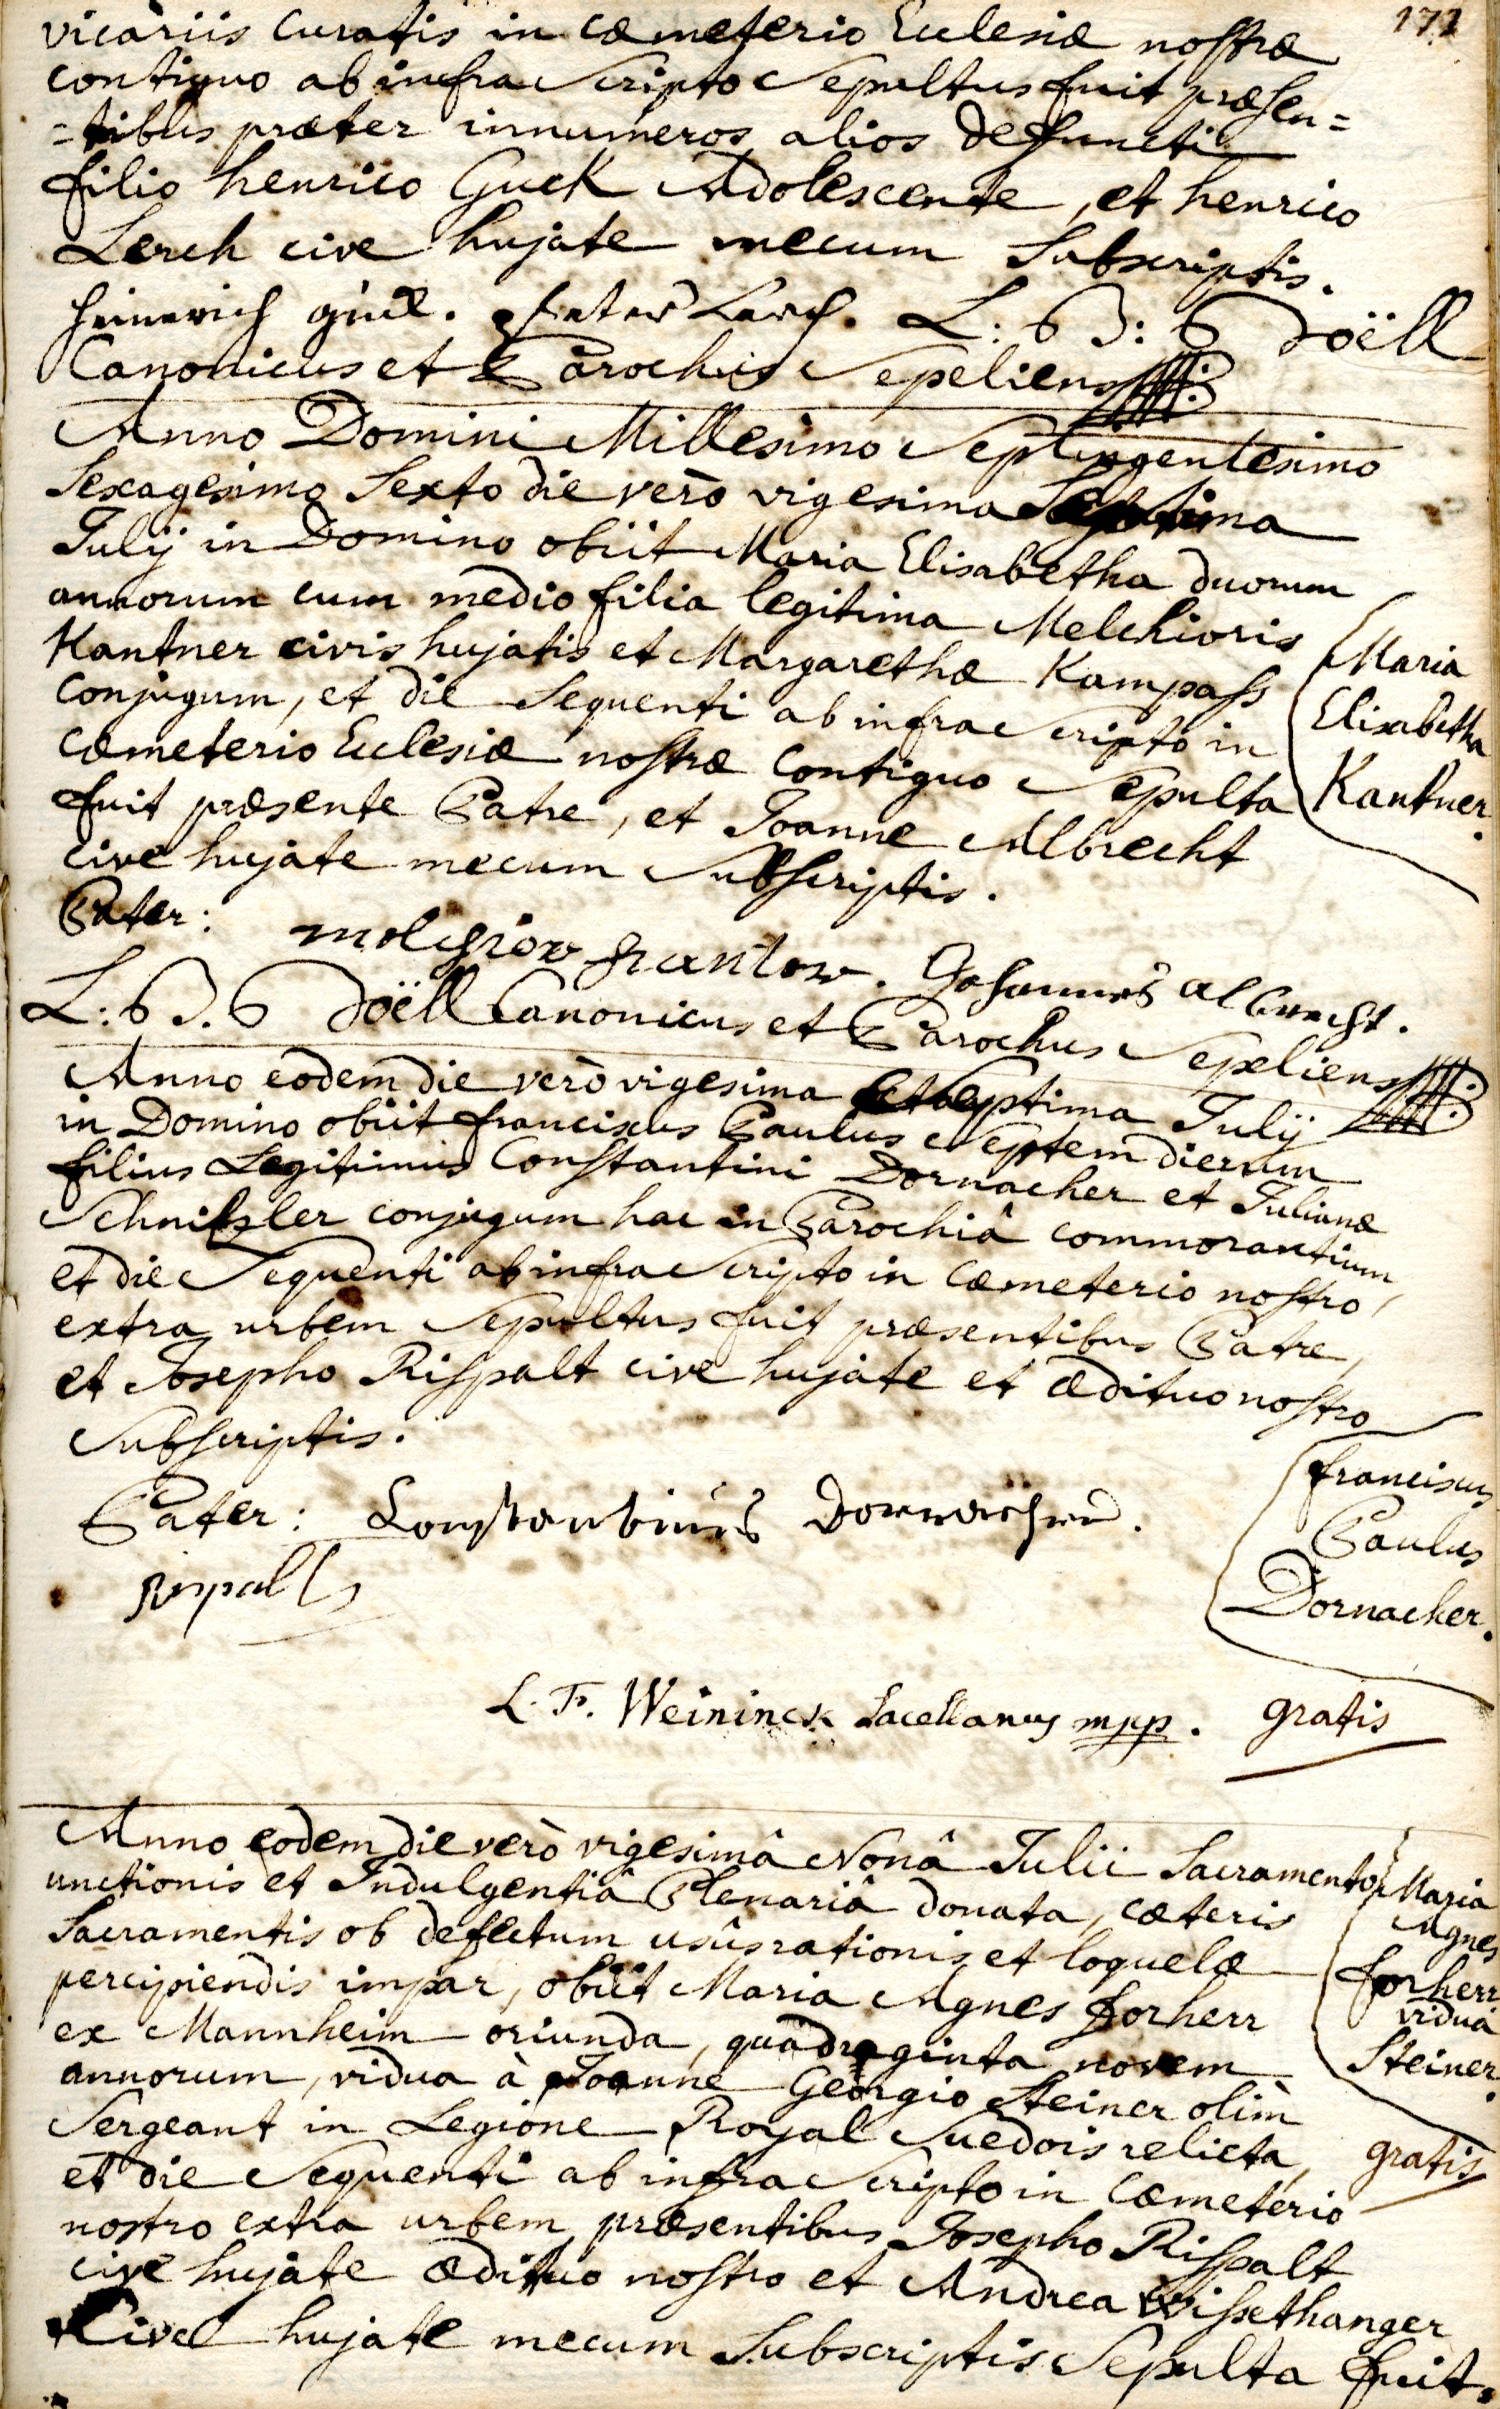 171
vicariis curatis in cæmeterio Ecclesiæ nostræ
contiguo ab infra scripto sepultus fuit præsen=
=tibus præter innumeros alios defuncti
filio henrico Guck Adolescente, et henrico
Lerch cive hujate mecum subscriptis.
Heinerich guck. Peter Lerch. L: B J: B Doëll
Canonicus et Parochus Sepeliens
Anno Domini Millesimo Septingentesimo
Sexagesimo Sexto die verò vigesima Septima
Julij in Domino obiit Maria Elisabetha duorum
annorum cum medio filia legitima Melchioris
Kantner civis hujatis et Margarethæ Kampass
conjugum, et die sequenti ab infra scripto in
cæmeterio Ecclesiæ nostræ contiguo sepulta
fuit præsente Patre, et Joanne Albrecht
cive hujate mecum subscriptis.
Maria
Elisabetha
Kantner.
Pater: melchior kantner. Johannes albrecht.
L: B J. B Doëll Canonicus et Parochus Sepeliens
Anno eodem die verò vigesima Septima Julij
in Domino obiit franciscus Paulus Septem dierum
filius Legitimus Constantini Dornacher et Julianæ
Schnitzler conjugum hac in Parochiâ commorantium
et die Sequenti ab infra scripto in cæmeterio nostro,
extra urbem Sepultus fuit præsentibus Patre,
et Josepho Rispalt cive hujate et ædituo nostro
Subscriptis.
Pater: Constantinus Dornacher.
Rispalt
franciscus
Paulus
Dornacher.
L. F. Weininck Sacellanus mpp. gratis
Anno eodem die verò vigesimâ Nonâ Julii Sacramento
unctionis et Indulgentiâ Plenariâ donata, cæteris
Sacramentis ob defectum usûs rationis et loquelæ
percipiendis impar, obiit Maria Agnes forherr
ex Mannheim oriunda, quadraginta novem
annorum, vidua à Joanne Georgio Steiner olim
Sergeant in Legione Royal Suedois relicta,
et die Sequenti ab infra scripto in Cæmeterio
nostro extra urbem præsentibus Josepho Rispalt
cive hujate ædituo nostro et Andrea Wissethanger
Cive hujate mecum Subscriptis Sepulta fuit.
Maria
Agnes
forherr
vidua
Steiner.
gratis